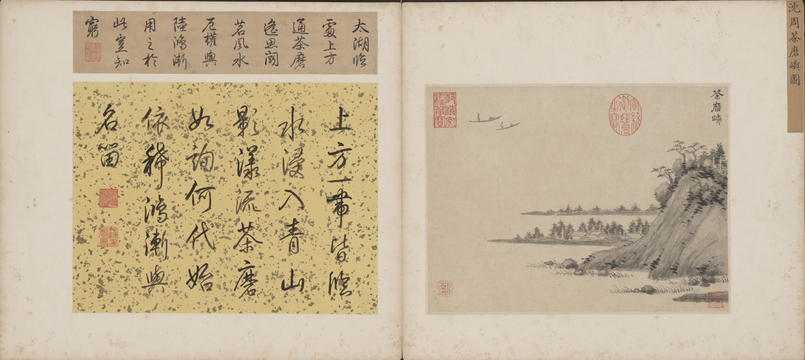 沈周茶磨嶼圖
茶磨嶼
太湖臨
處上方
通茶磨
逸思闡
茗風水
厄權輿
陸鴻漸
用之於
此豈知
窮
上方一帶皆臨
水浸入青山
影漾流茶磨
如詢何代始
依稀鴻漸與
名留